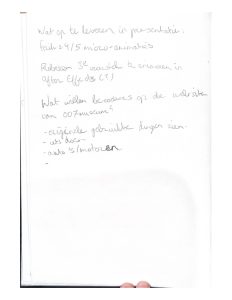 Wat op te leveren in presentatie:
4/5 micro-animaties
Robbson in
After Effects (?)
Wat willen bezoekers op de website
van 007museum?
- originele gebruikte dingen zien.
- auto's/motoren
-